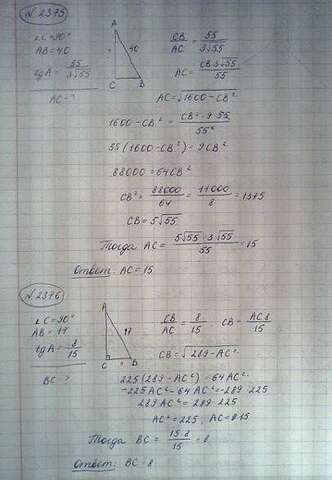 № 2375
∠C=90°
AB=40
tgA = 55/(3√55)
AC-?
A
40
C B
CB/AC = 55/(3√55)
AC = (CB·3√55)/55
AC=√(1600-CB²)
1600-CB² = (CB²·9·55)/55²
55(1600-CB²)=9CB²
88000=64CB²
CB² = 88000/64 = 11000/8 = 1375
CB=5√55
Тогда AC = (5√55·3√55)/55 = 15
Ответ: AC=15
№ 2376
∠C=90°
AB=17
tgA = 8/15
BC-?
A
17
C B
CB/AC = 8/15 CB = AC·8/15
CB=√(289-AC²)
225(289-AC²)=64AC²
-225AC²-64AC²=-289·225
289AC²=289·225
AC²=225, AC=15
Тогда BC = (15·8)/15 = 8
Ответ: BC=8